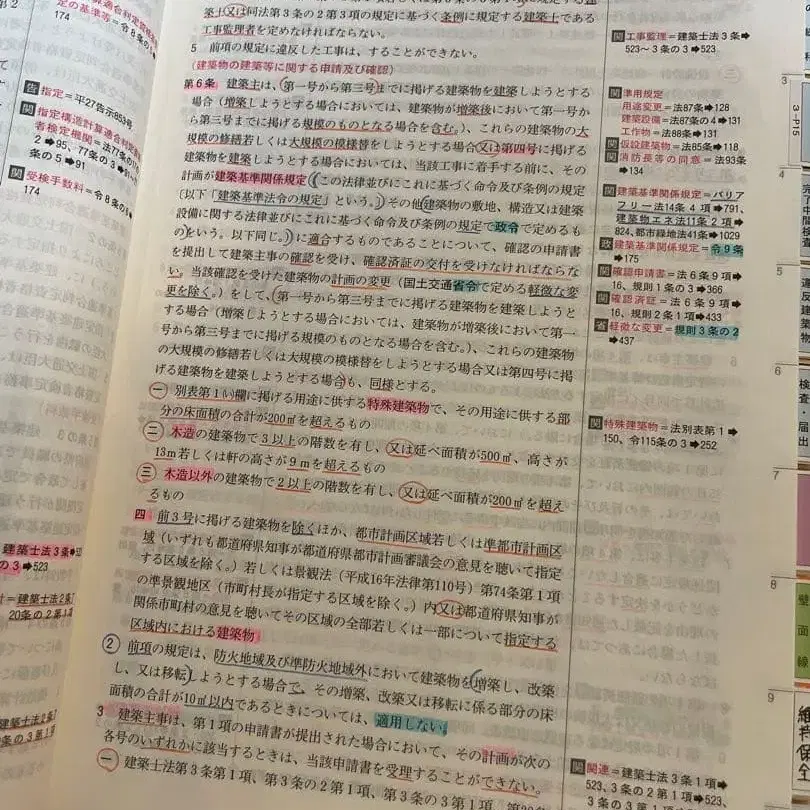 築士又は同法第3条の2第3項の規定に基づく条例に規定する建築士である
工事監理者を定めなければならない。
5 前項の規定に違反した工事は、することができない。
(建築物の建築等に関する申請及び確認)
第6条 建築主は、第一号から第三号までに掲げる建築物を建築しようとする
場合(増築しようとする場合においては、建築物が増築後において第一号か
ら第三号までに掲げる規模のものとなる場合を含む。)、これらの建築物の大
規模の修繕若しくは大規模の模様替をしようとする場合又は第四号に掲げる
建築物を建築しようとする場合においては、当該工事に着手する前に、その
計画が建築基準関係規定(この法律並びにこれに基づく命令及び条例の規定
(以下「建築基準法令の規定」という。)その他建築物の敷地、構造又は建築
設備に関する法律並びにこれに基づく命令及び条例の規定で政令で定めるも
のをいう。以下同じ。)に適合するものであることについて、確認の申請書
を提出して建築主事の確認を受け、確認済証の交付を受けなければならな
い。当該確認を受けた建築物の計画の変更(国土交通省令で定める軽微な変
更を除く。)をして、第一号から第三号までに掲げる建築物を建築しようと
する場合(増築しようとする場合においては、建築物が増築後において第一
号から第三号までに掲げる規模のものとなる場合を含む。)、これらの建築物
の大規模の修繕若しくは大規模の模様替をしようとする場合又は第四号に掲
げる建築物を建築しようとする場合も、同様とする。
一 別表第1(い)欄に掲げる用途に供する特殊建築物で、その用途に供する部
分の床面積の合計が200㎡を超えるもの
二 木造の建築物で3以上の階数を有し、又は延べ面積が500㎡、高さが
13m若しくは軒の高さが9mを超えるもの
三 木造以外の建築物で2以上の階数を有し、又は延べ面積が200㎡を超え
るもの
四 前3号に掲げる建築物を除くほか、都市計画区域若しくは準都市計画区
域(いずれも都道府県知事が都道府県都市計画審議会の意見を聴いて指定
する区域を除く。)若しくは景観法(平成16年法律第110号)第74条第1項
の準景観地区(市町村長が指定する区域を除く。)内又は都道府県知事が
関係市町村の意見を聴いてその区域の全部若しくは一部について指定する
区域内における建築物
2 前項の規定は、防火地域及び準防火地域外において建築物を増築し、改築
し、又は移転しようとする場合で、その増築、改築又は移転に係る部分の床
面積の合計が10㎡以内であるときについては、適用しない。
3 建築主事は、第1項の申請書が提出された場合において、その計画が次の
各号のいずれかに該当するときは、当該申請書を受理することができない。
一 建築士法第3条第1項、第3条の2第1項、第3条の3第1項、
関 工事監理=建築士法3条➡
523〜3条の3➡523
関 準用規定
用途変更=法87条➡128
建築設備=法87条の4➡131
工作物=法88条➡131
関 仮設建築物=法85条➡118
関 消防長等の同意=法93条
➡134
関 建築基準関係規定=バリア
フリー法14条4項➡791、
建築物エネ法11条2項➡
824、都市緑地法41条➡1029
政 建築基準関係規定=令9条
➡175
関 確認申請書=法6条9項➡
16、規則1条の3➡366
関 確認済証=法6条9項➡
16、規則2条1項➡433
省 軽微な変更=規則3条の2
➡437
関 特殊建築物=法別表第1➡
150、令115条の3➡252
関 関連=建築士法3条1項➡
523、3条の2第1項➡523、
3条の3第1項
定の基準等=令8条の
174
告 指定=平27告示853号
関 指定構造計算適合判定
者検定機関=法77条の
2➡95、77条の3➡
条の5➡91
関 受検手数料=令8条の
174
建築士法3条➡
の3➡523
=建築士法2条
20条の2第1項
建築士法2条
条の3第1
3
3-P15
完了中間検査
5
違反建築
6
検査・届出
7
8
壁面線
9
維持保全